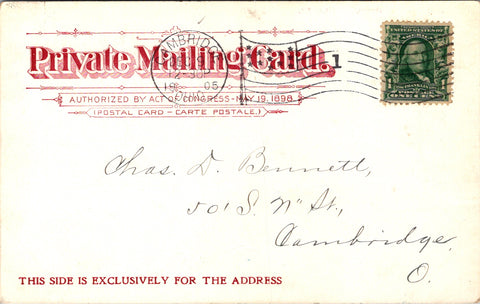 Private Mailing Card.
AUTHORIZED BY ACT OF CONGRESS-MAY 19, 1898.
(POSTAL CARD - CARTE POSTALE.)
CAMBRIDGE
05
OHIO
1
FRANKLIN
ONE CENT
Chas. D. Bennett,
St,
Cambridge,
O.
THIS SIDE IS EXCLUSIVELY FOR THE ADDRESS